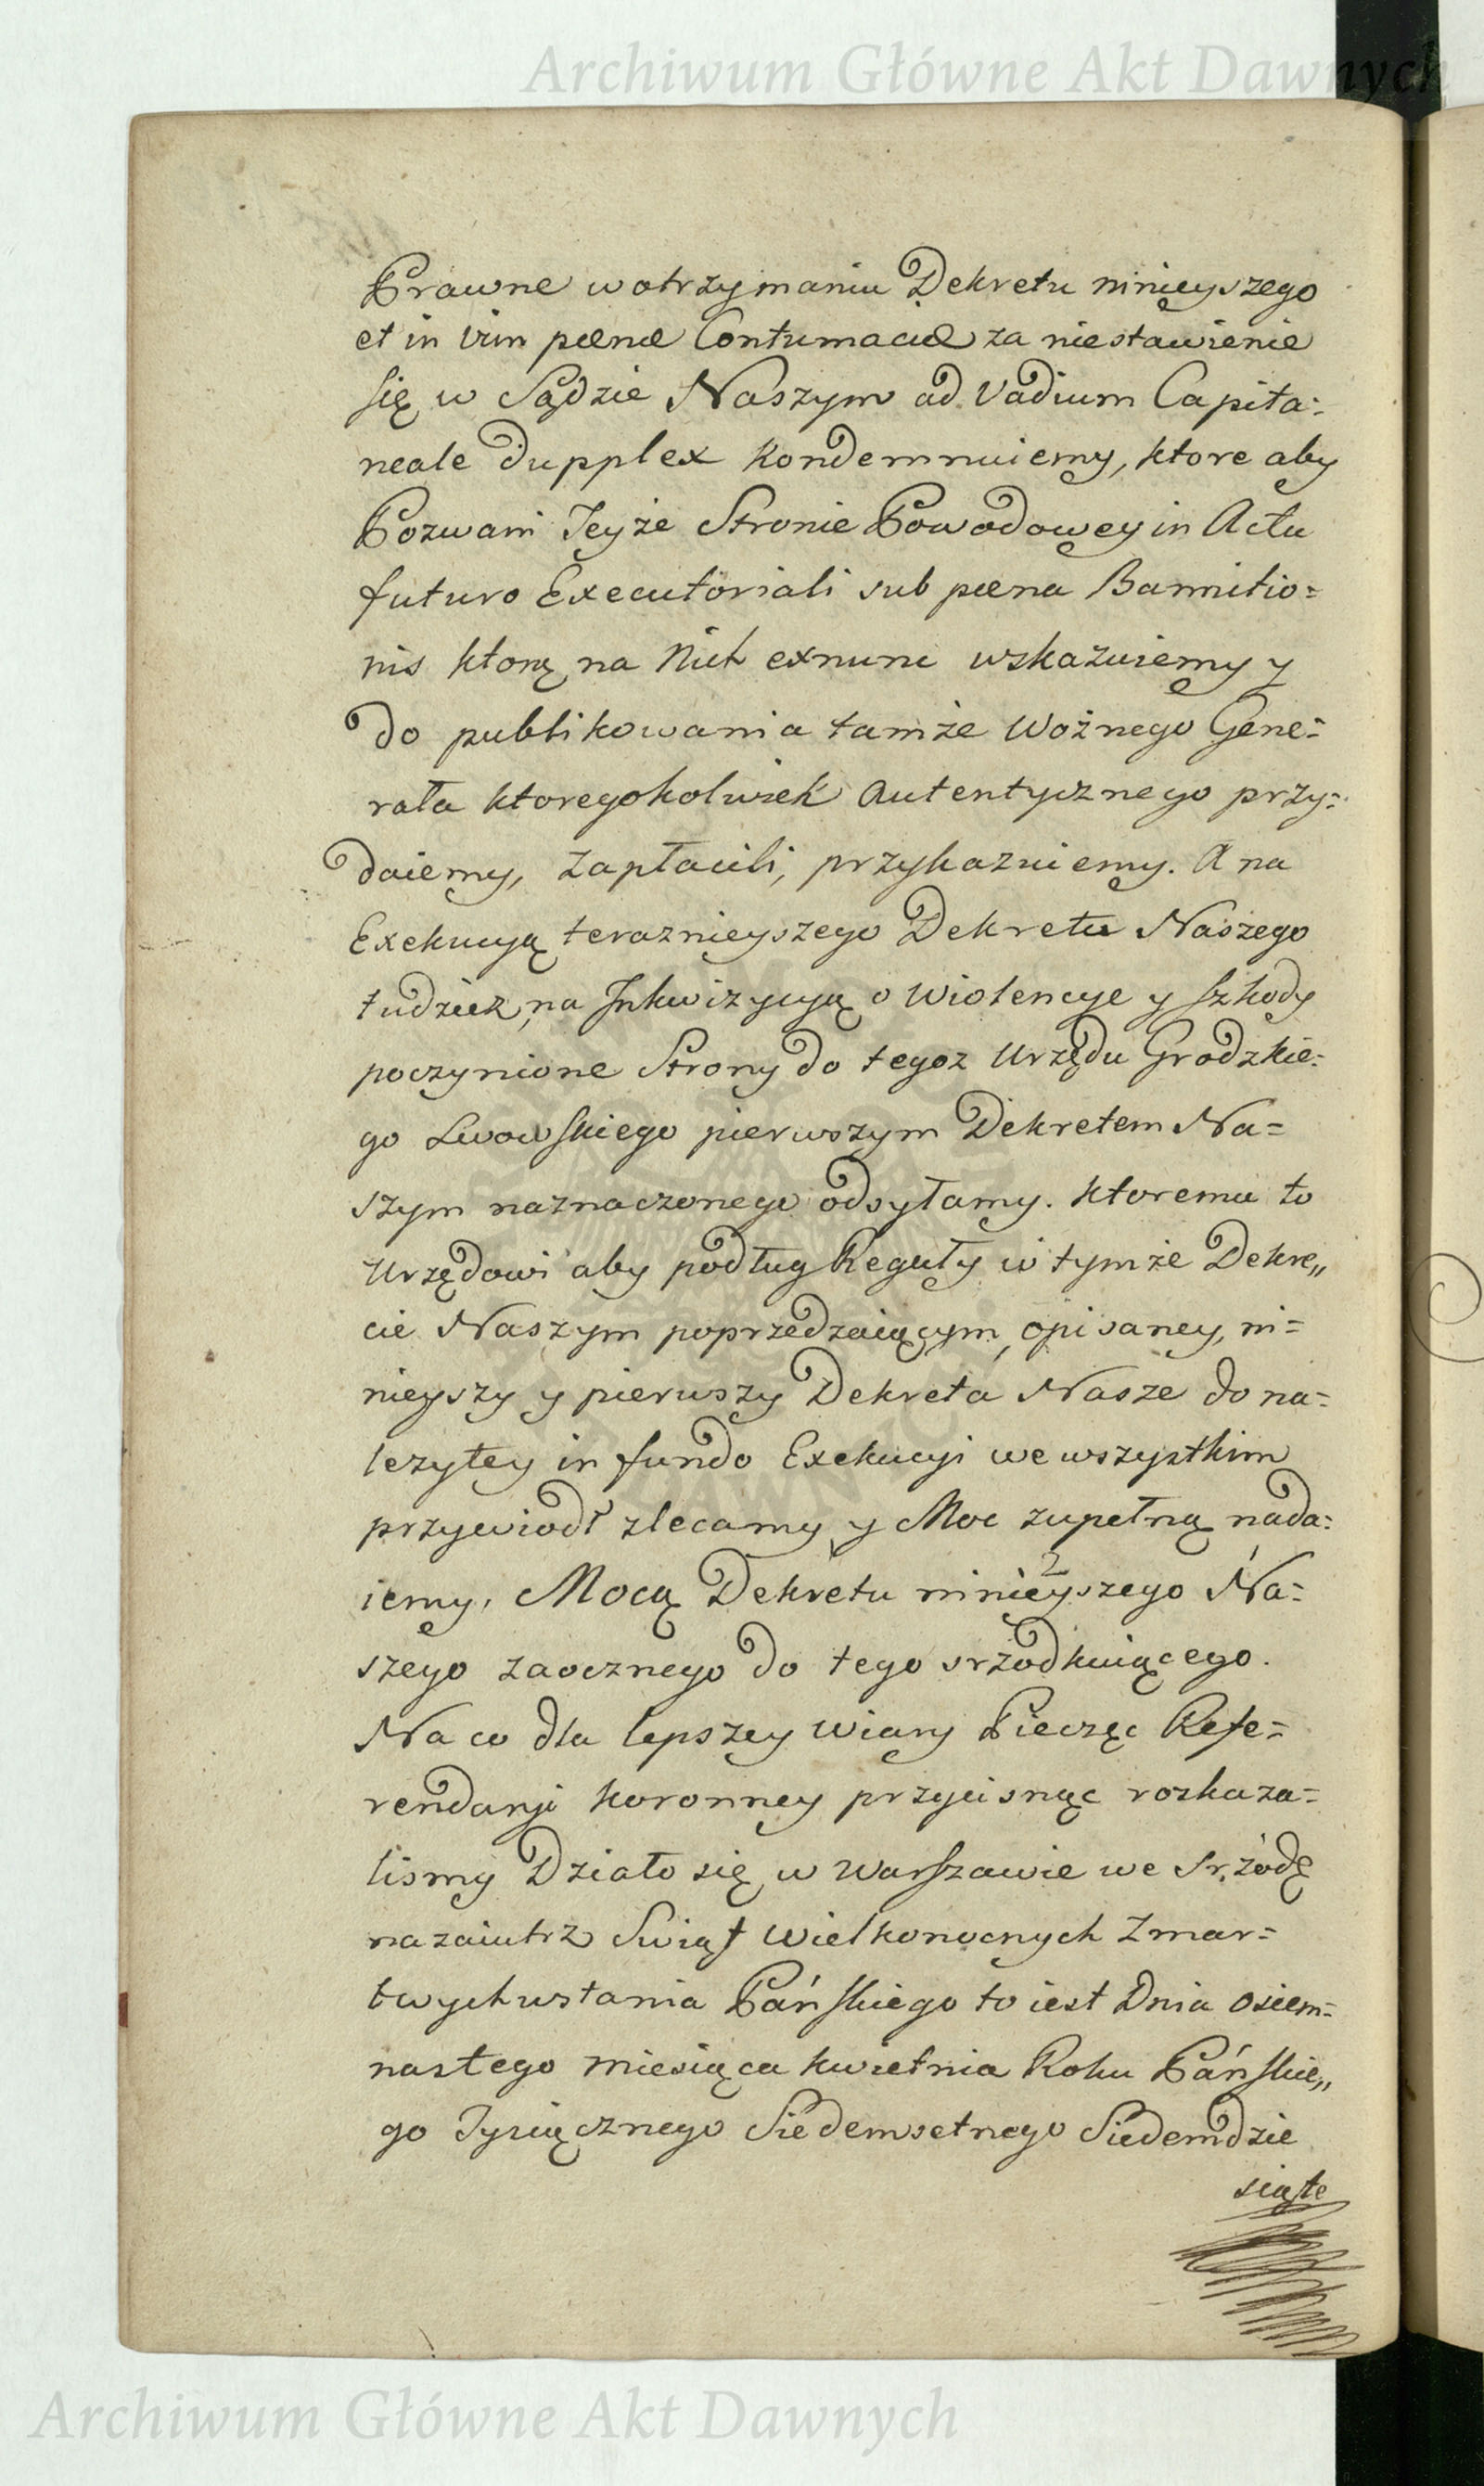 Archiwum Główne Akt Dawnych
Prawne w otrzymaniu Dekretu ninieyszego
et in vim pœnæ Contumaciæ za niestawienie
się w Sądzie Naszym ad Vadium Capita=
neale dupplex kondemnuiemy, ktore aby
Pozwani Teyże Stronie Powodowey in Actu
futuro Executoriali sub pœna Bannitio=
nis ktorą na Nich exnunc wskazuiemy y
do publikowania tamże Woźnego Gene=
rała ktoregokolwiek autentycznego przy=
daiemy, zapłacili, przykazuiemy. A na
Exekucyą teraznieyszego Dekretu Naszego
tudziez na Inkwizycyą o Wiolencye y szkody
poczynione Strony do tegoz Urzędu Grodzkie=
go Lwowskiego pierwszym Dekretem Na=
szym naznaczonego odsyłamy. Ktoremu to
Urzędowi aby podług Reguły w tymże Dekre„
cie Naszym poprzedzaiącym, opisaney, ni=
nieyszy y pierwszy Dekreta Nasze do na=
lezytey in fundo Exekucyi we wszystkim
przywiodł zlecamy y Moc zupełną nada=
iemy, Mocą Dekretu ninieyszego Na=
szego zaocznego do tego srzodkuiącego.
Na co dla lepszey wiary Pieczęc Refe=
rendaryi Koronney przycisnąc rozkaza=
lismy Działo się w Warszawie we Srzodę
nazaiutrz Swiąt Wielkonocnych Zmar=
twychwstania Pańskiego to iest Dnia osiem=
nastego miesiąca kwietnia Roku Pańskie„
go Tysiącznego Siedemsetnego Siedemdzie
siąte
Archiwum Główne Akt Dawnych